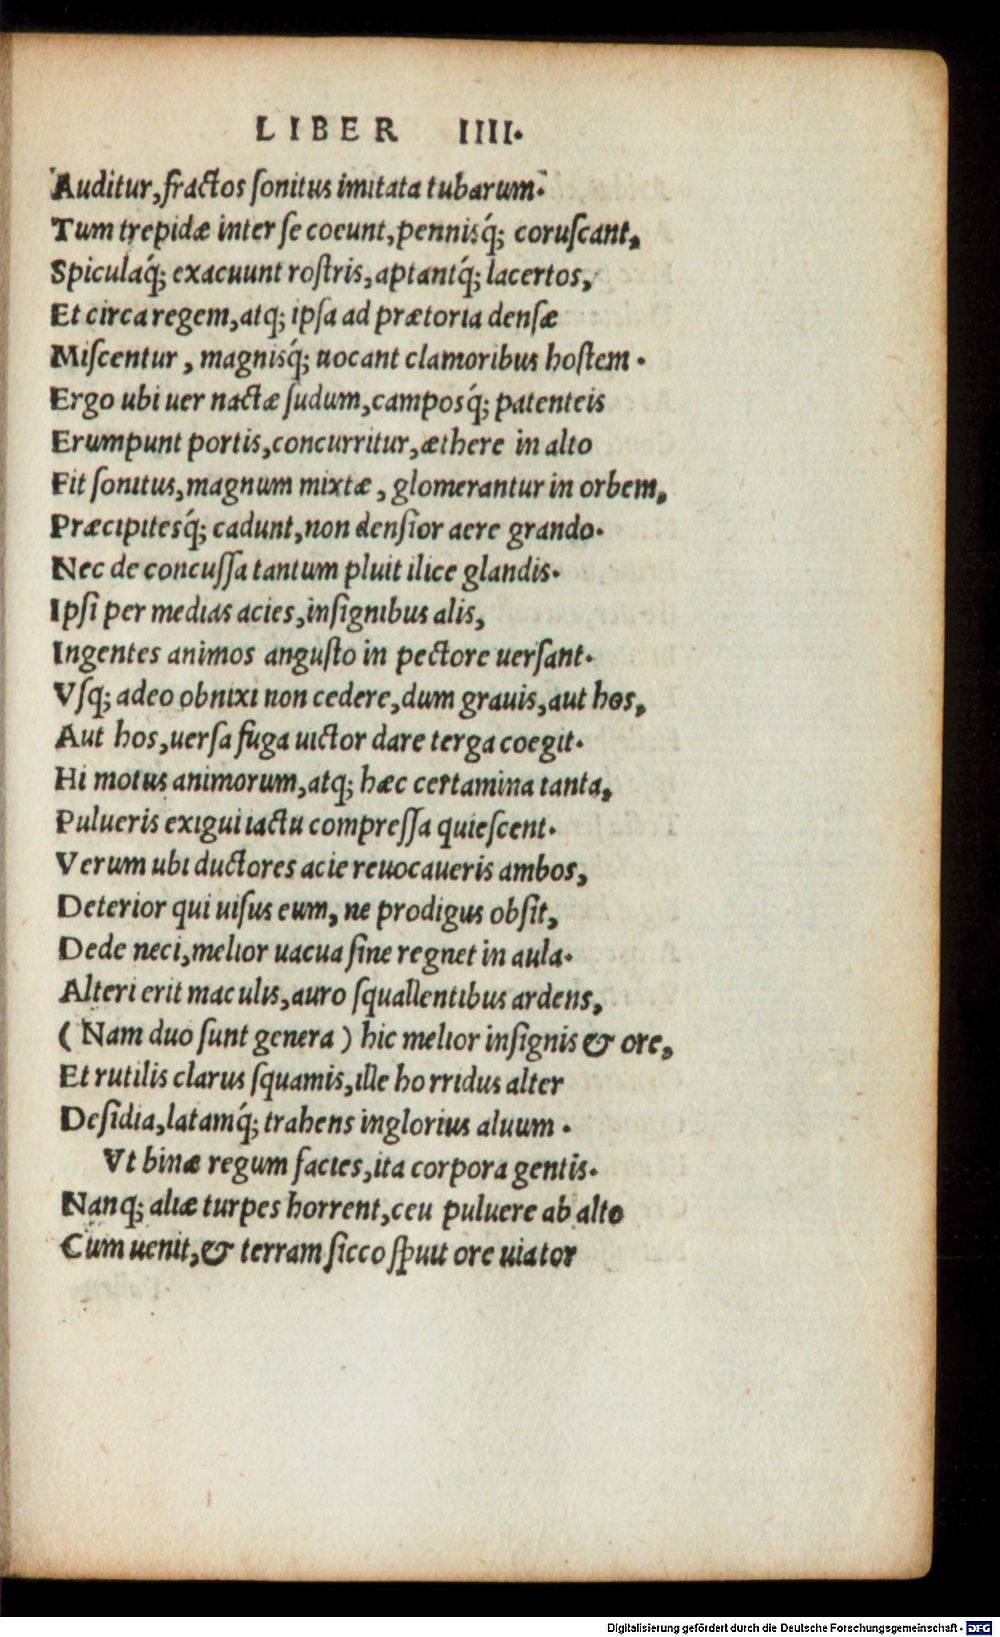 LIBER IIII.
Auditur, fractos ſonitus imitata tubarum.
Tum trepidæ inter ſe coeunt, pennisq́; coruſcant,
Spiculaq́; exacuunt roſtris, aptantq́; lacertos,
Et circa regem, atq; ipſa ad prætoria denſæ
Miſcentur, magnisq́; uocant clamoribus hoſtem.
Ergo ubi uer nactæ ſudum, camposq́; patenteis
Erumpunt portis, concurritur, æthere in alto
Fit ſonitus, magnum mixtæ, glomerantur in orbem,
Præcipitesq́; cadunt, non denſior aere grando.
Nec de concuſſa tantum pluit ilice glandis.
Ipſi per medias acies, inſignibus alis,
Ingentes animos anguſto in pectore uerſant.
Vſq; adeo obnixi non cedere, dum grauis, aut hos,
Aut hos, uerſa fuga uictor dare terga coegit.
Hi motus animorum, atq; hæc certamina tanta,
Pulueris exigui iactu compreſſa quieſcent.
Verum ubi ductores acie reuocaueris ambos,
Deterior qui uiſus eum, ne prodigus obſit,
Dede neci, melior uacua ſine regnet in aula.
Alter erit maculis, auro ſquallentibus ardens,
(Nam duo ſunt genera) hic melior inſignis & ore,
Et rutilis clarus ſquamis, ille horridus alter
Deſidia, latamq́; trahens inglorius aluum.
Vt binæ regum facies, ita corpora gentis.
Nanq; aliæ turpes horrent, ceu puluere ab alto
Cum uenit, & terram ſicco ſpuit ore uiator
Digitalisierung gefördert durch die Deutsche Forschungsgemeinschaft - DFG